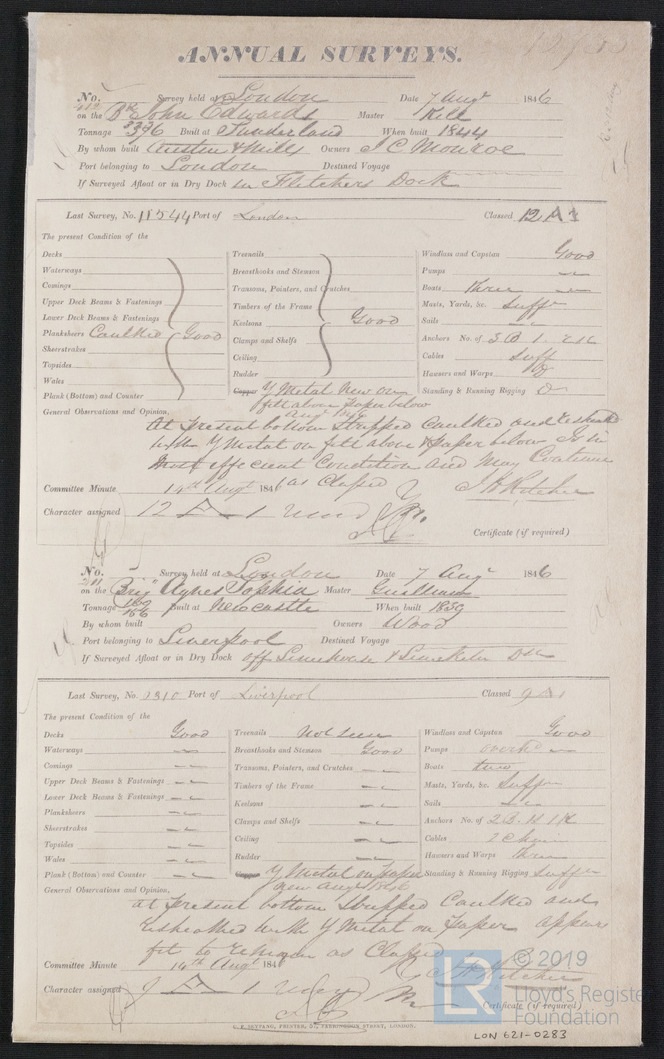 ANNUAL SURVEYS.
No. 412 Survey held at London Date 7 Augt 1846
on the Bk John Edwards Master Kell
Tonnage 376 Built at Sunderland When built 1844
By whom built Austin & Mills Owners J C Monroe
Port belonging to London Destined Voyage
If Surveyed Afloat or in Dry Dock in Fletchers Dock
Last Survey, No. 11544 Port of London Classed 12 A 1
The present Condition of the
Decks
Waterways
Comings
Upper Deck Beams & Fastenings
Lower Deck Beams & Fastenings
Plankshears Caulked Good
Sheerstrakes
Topsides
Wales
Plank (Bottom) and Counter
Treenails
Breasthooks and Stemson
Transoms, Pointers, and Crutches
Timbers of the Frame
Keelsons Good
Clamps and Shelfs
Ceiling
Rudder
Copper Y Metal New on
felt above paper below
Augt 1846
Windlass and Capstan Good
Pumps
Boats three
Masts, Yards, &c. Sufft
Sails
Anchors No. of 3 B 1
Cables Suff
Hausers and Warps
Standing & Running Rigging
General Observations and Opinion,
At present bottom Stripped Caulked and
with Y Metal on felt above & paper below Is in
Most efficient Condition and May Continue
as Classed
J H Ritchie
Committee Minute 14th Augt 1846
Character assigned 12 A 1
Certificate (if required)
No. 411 Survey held at London Date 7 Augt 1846
on the Brig Agnes Sophia Master
Tonnage 166 Built at Newcastle When built 1839
By whom built Owners Wood
Port belonging to Liverpool Destined Voyage
If Surveyed Afloat or in Dry Dock off Limehouse & Limekiln Dk
Last Survey, No. 2810 Port of Liverpool Classed 9 A 1
The present Condition of the
Decks Good
Waterways
Comings
Upper Deck Beams & Fastenings
Lower Deck Beams & Fastenings
Plankshears
Sheerstrakes
Topsides
Wales
Plank (Bottom) and Counter
Treenails Not seen
Breasthooks and Stemson Good
Transoms, Pointers, and Crutches
Timbers of the Frame
Keelsons
Clamps and Shelfs
Ceiling
Rudder
Copper Y Metal on paper
new Augt 1846
Windlass and Capstan Good
Pumps
Boats two
Masts, Yards, &c. Sufft
Sails
Anchors No. of 2 B.
Cables 2 Chain
Hausers and Warps three
Standing & Running Rigging Sufft
General Observations and Opinion,
at present bottom Stripped Caulked and
Resheathed with Y Metal on paper appears
fit to remain as Classed
J H Ritchie
Committee Minute 14th Augt 1846
Character assigned 9 A 1
Certificate (if required)
LR
© 2019
Lloyd's Register
Foundation
LON 621-0283